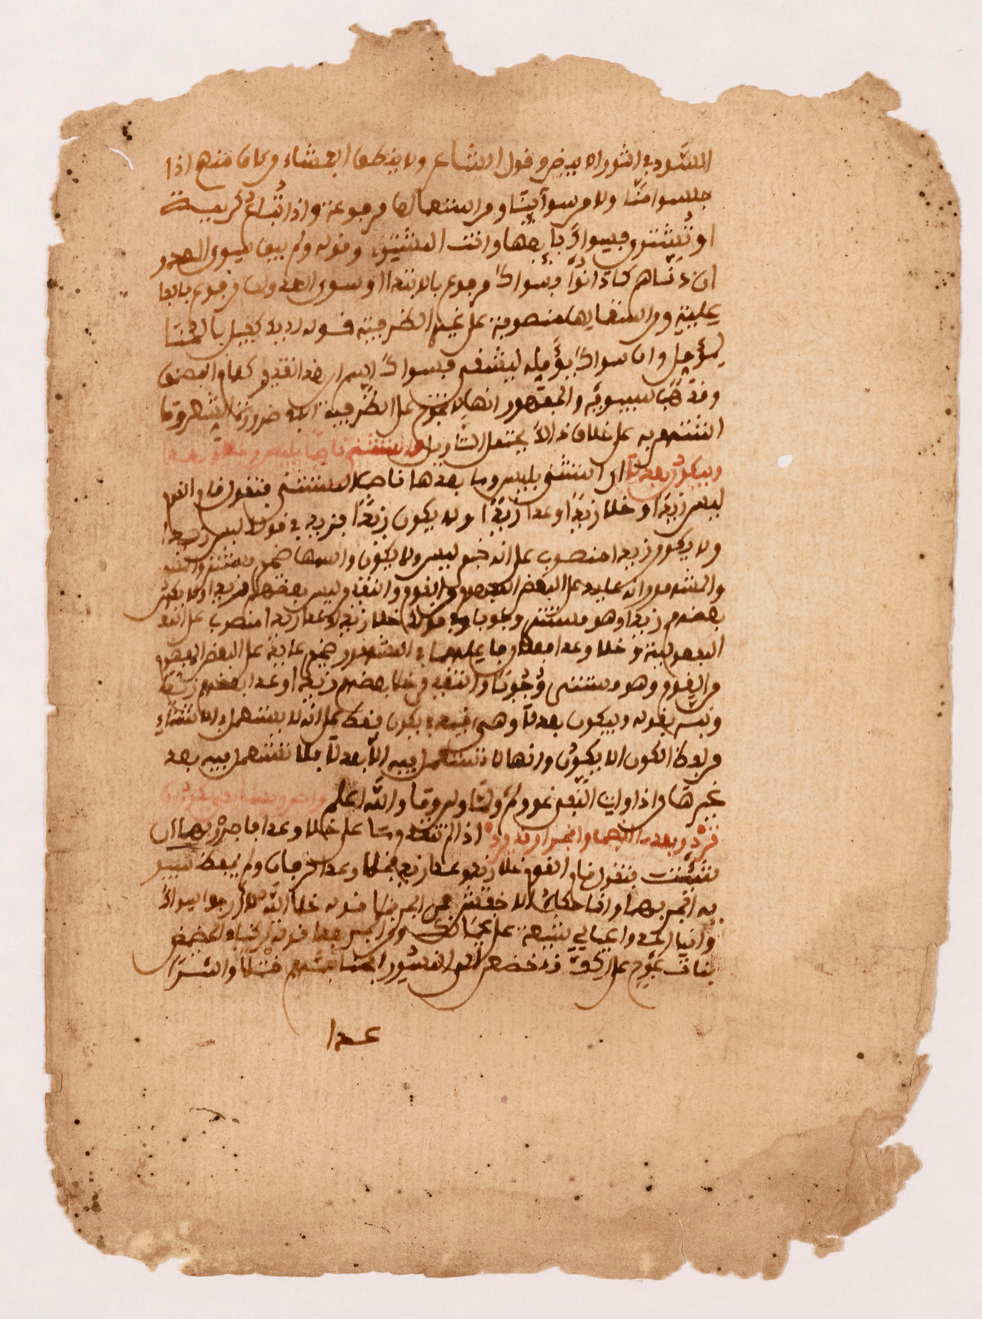 السوداء في الثور الابيض وقول الشاعر ولا ينطق الفحشاء من كان منهم اذا
جلسوا منا ولا من سوائنا ومن استعمالها مرفوعة واذا تباع كريمة
او تشترى فسواك بايعها وانت المشتري وقوله ولم يبق سوى العدوان
دناهم كما دانوا فسواك مرفوع بالابتداء وسوى العدوان مرفوع بالفا
علية ومن استعمالها منصوبة على غير الظرفية قوله لديك كفيل بالمنى
لمؤمل وان سواك من يؤمله يشقى فسواك اسم ان هذا تقدير كلام المصنف
ومذهب سيبويه والجمهور انها لا تخرج عن الظرفية الا في ضرورة الشعر وما
استشهد به على خلاف ذلك يحتمل التاويل واستثن ناصبا بليس وخلا وبعدا
وبيكون بعد لا اي استثن بليس وما بعدها ناصبا المستثنى فتقول قام القوم
ليس زيدا وخلا زيدا وعدا زيدا ولا يكون زيدا فزيدا في قولك ليس زيدا
ولا يكون زيدا منصوب على انه خبر ليس ولا يكون واسمها ضمير مستتر
والمشهور انه عايد على البعض المفهوم من القوم والتقدير ليس بعضهم زيدا ولا يكون
بعضهم زيدا وهو مستتر وجوبا وفي قولك خلا زيدا وعدا زيدا منصوب على
المفعولية وخلا وعدا فعلان فاعلهما في المشهور ضمير عايد على البعض المفهوم
من القوم وهو مستتر وجوبا والتقدير خلا بعضهم زيدا وعدا بعضهم زيدا
ونبه بقوله وبيكون بعد لا وهو قيد في يكون فقط على انه لا يستعمل في الاستثناء
من لفظ الكون الا يكون وانها لا تستعمل فيه الا بعد لا فلا تستعمل فيه بعد
غيرها من ادوات النفي نحو لم وان ولن ولما وما والله اعلم واجرر بسابقي يكون ان
ترد وبعد ما انصب وانجرار قد يرد اي اذا لم تتقدم ما على خلا وعدا فاجرر بهما ان
شئت فتقول قام القوم خلا زيد وعدا زيد فخلا وعدا حرفا جر ولم يحفظ سيبويه
به الجر بهما وانما حكاه الاخفش فمن الجر بخلا قوله خلا الله لا ارجو سواك
وانما اعد عيالي شعبة من عيالك ومن الجر بعدا قوله تركنا في الحضيض
بنات عوج عواكف قد خضعن الى النسور ابحنا حيهم قتلا واسرا
عدا